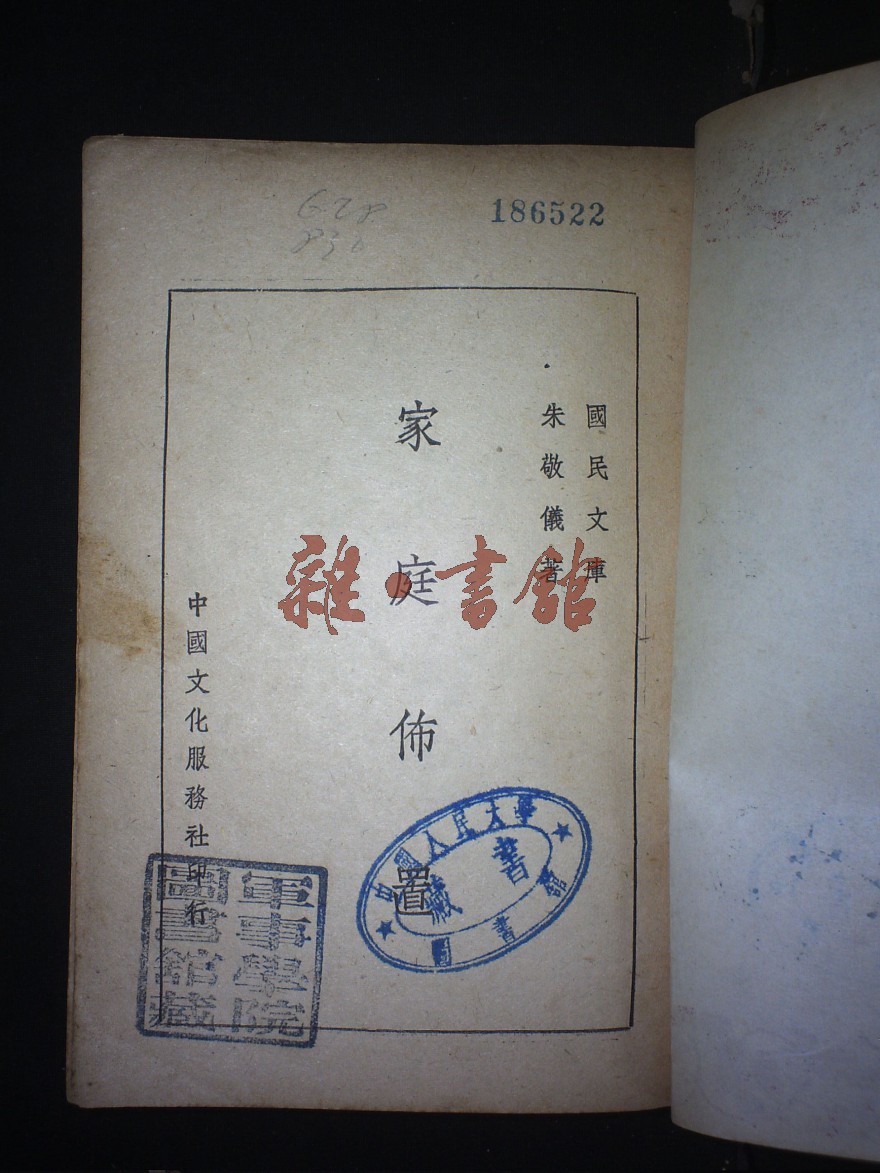 186522
國民文庫
朱敬儀著
家庭佈置
中國文化服務社印行
雜·書館
中國人民大學
藏書
圖書館
軍事學院
圖書館藏